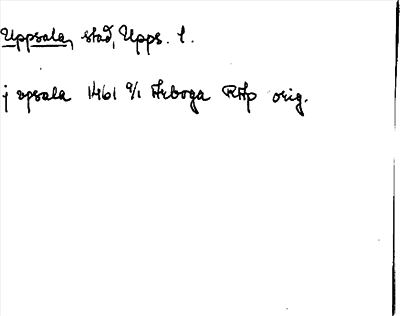 Uppsala, stad, Upps. l.
j vpsala 1461 9/1 Arboga RAp orig.